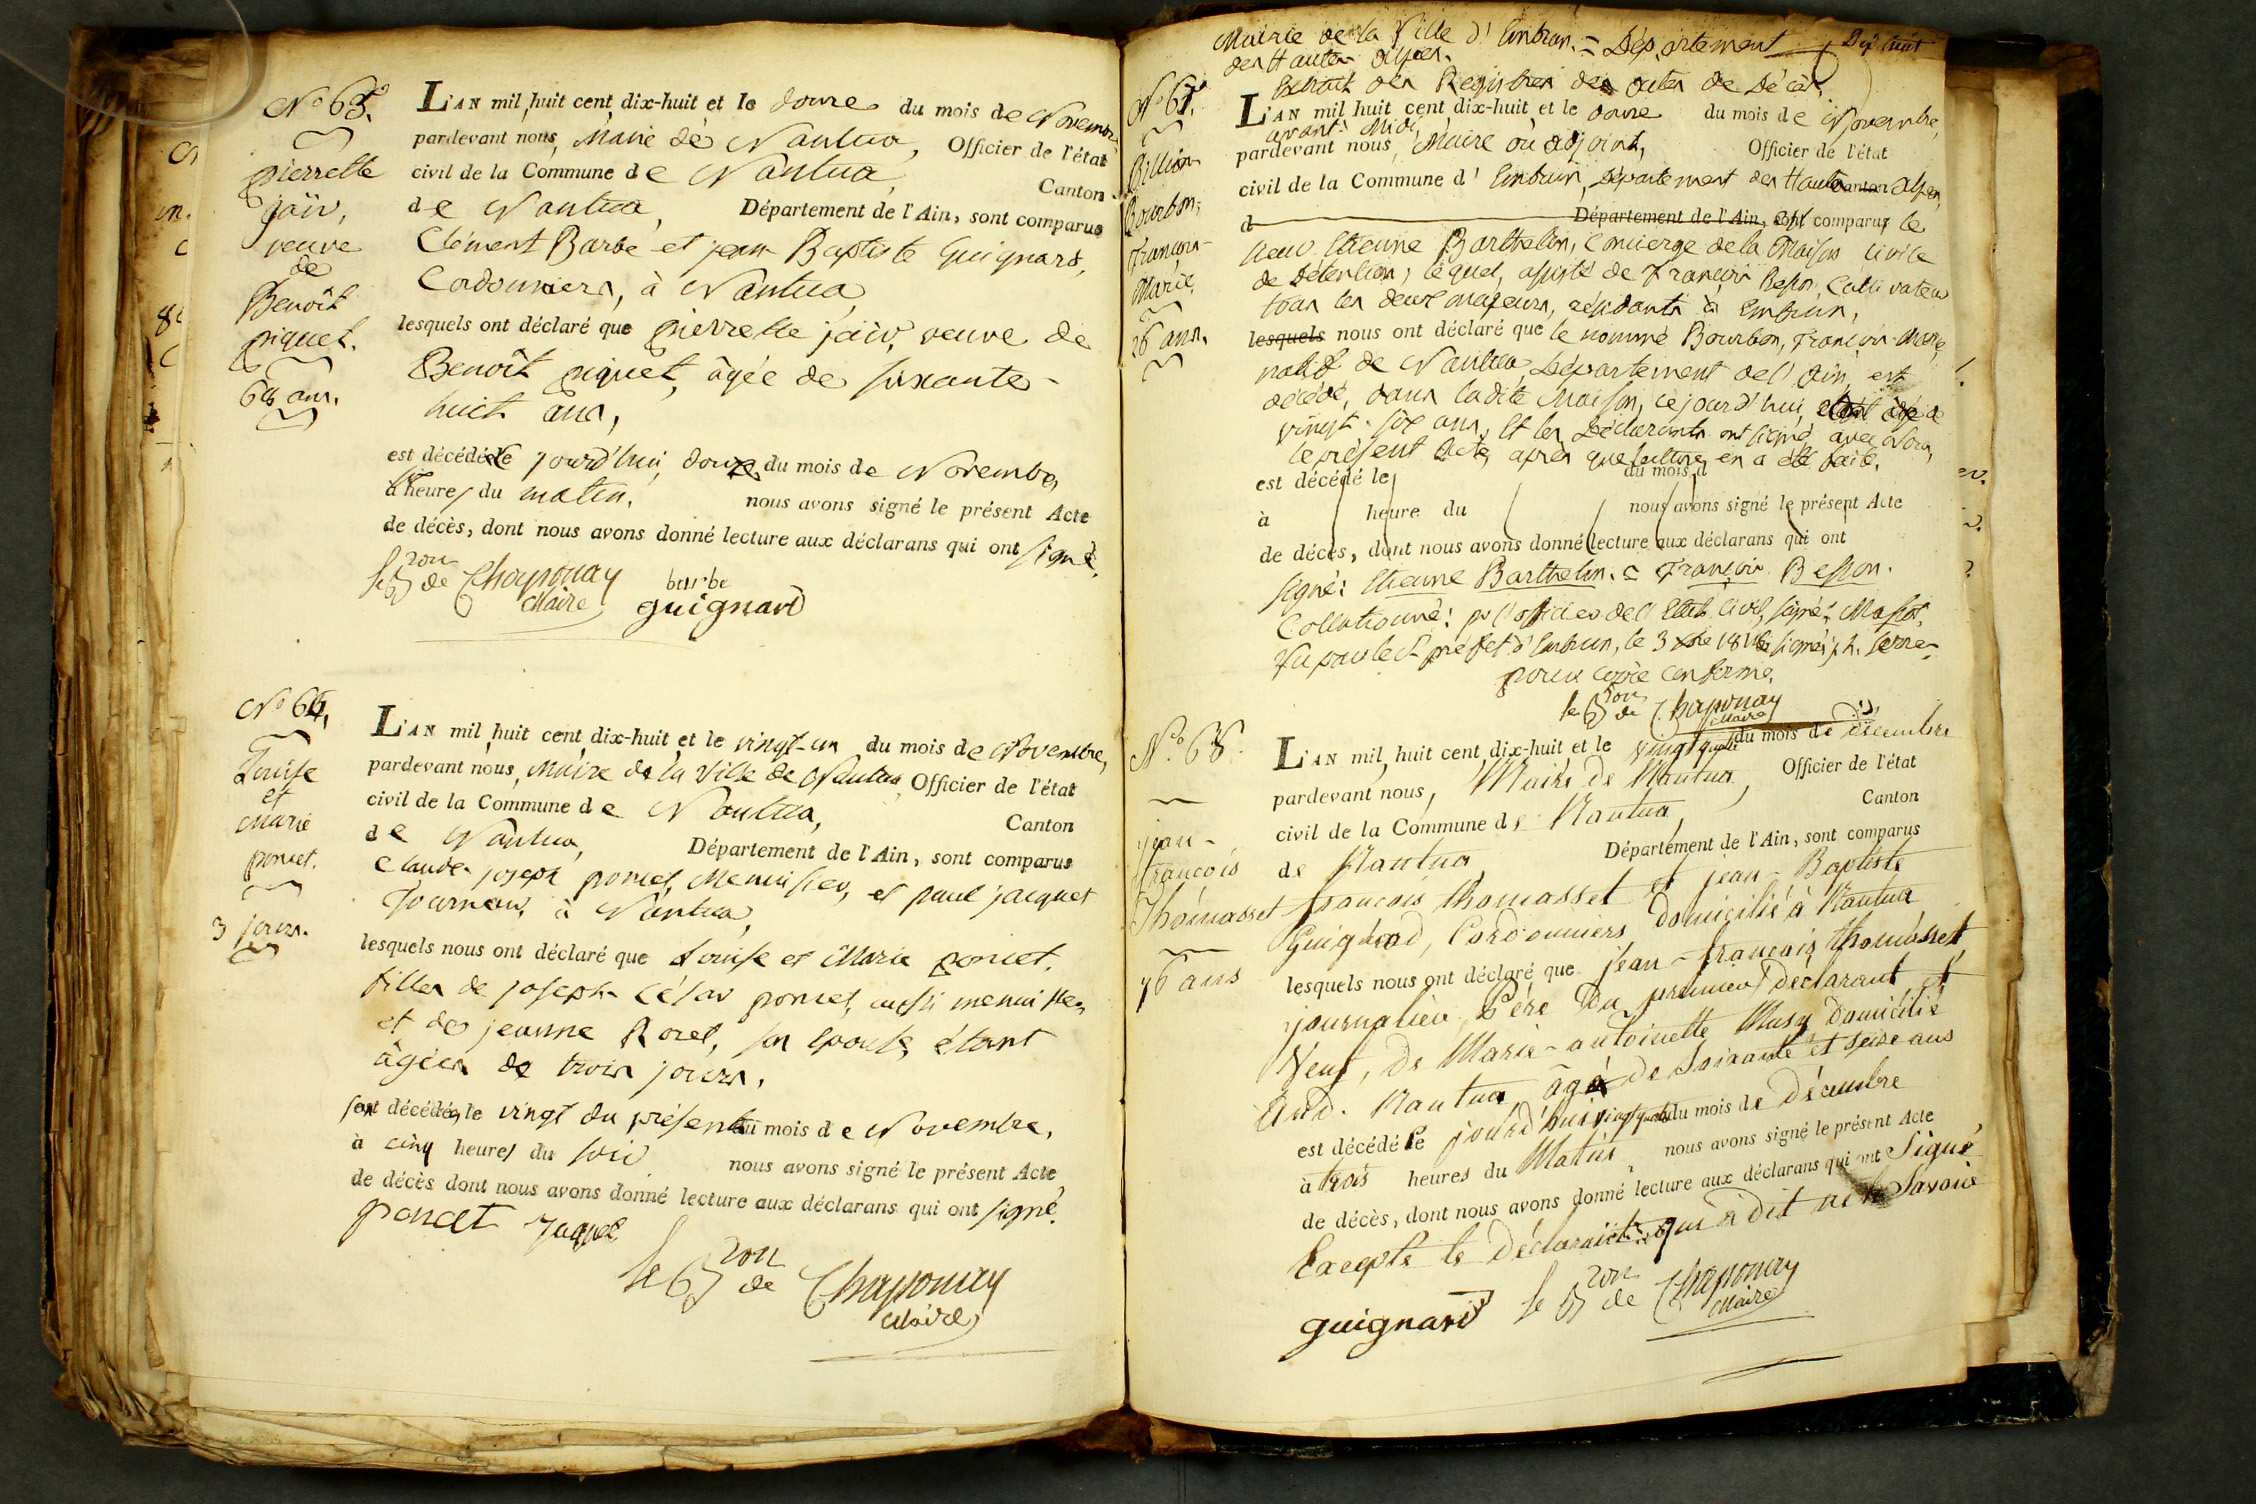 N.° 65.
pierrette
jaïr,
veuve
de
Benoît
piquet.
68 ans.
L'AN mil huit cent dix-huit et le douze du mois de Novembre
pardevant nous, Maire de Nantua, Officier de l'état
civil de la Commune de Nantua, Canton
de Nantua, Département de l'Ain, sont comparus
Clément Barbe et jean Baptiste Guignard,
Cordonniers, à Nantua
lesquels ont déclaré que pierrette jaïr, veuve de
Benoît piquet, âgée de soixante-
huit ans,
est décédée ce jourd'hui, douze du mois de Novembre,
à heures du matin. nous avons signé le présent Acte
de décès, dont nous avons donné lecture aux déclarans qui ont signé.
le Bon de Chaponay barbe
Maire guignard
N.° 66,
Louise
et
Marie
poncet.
3 jours.
L'AN mil huit cent dix-huit et le vingt-un du mois de Novembre,
pardevant nous, Maire de la Ville de Nantua, Officier de l'état
civil de la Commune de Nantua, Canton
de Nantua, Département de l'Ain, sont comparus
Claude-joseph poncet, Menuisier, et paul jacquet
Tourneur, à Nantua,
lesquels nous ont déclaré que Louise et Marie poncet,
filles de joseph César poncet, aussi menuisier,
et de jeanne Rorel, son épouse, étant
âgées de trois jours,
sont décédées le vingt du présent du mois de Novembre,
à cinq heures du soir. nous avons signé le présent Acte
de décès dont nous avons donné lecture aux déclarans qui ont signé.
poncet jaquet
le Bon de Chaponay
Maire
Mairie de la Ville d'Embrun. = Département
des Hautes Alpes.
Extrait des Registres des actes de Décès.
N.° 67.
Billion
Bourbon,
François-
Marie.
26 ans.
L'AN mil huit cent dix-huit et le douze du mois de Novembre,
avant Midi,
pardevant nous, Maire ou adjoint, Officier de l'état
civil de la Commune d'Embrun, Département des Hautes Canton Alpes,
d Département de l'Ain, est comparu le
sieur Etienne Barthelin, Concierge de la Maison civile
de Détention; lequel, assisté de François Besson, Cultivateur
tous les deux majeurs, résidants à Embrun,
lesquels nous ont déclaré que le nommé Bourbon, François-Marie,
natif de Nantua, Département de l'Ain, est
décédé, dans ladite Maison, ce jourd'hui, étant âgé de
vingt-six ans, et les Déclarants ont signé avec Nous,
le présent Acte, après que lecture en a été faite.
est décédé le du mois d
à heure du nous avons signé le présent Acte
de décès, dont nous avons donné lecture aux déclarans qui ont
signé: Etienne Barthelin. = François Besson.
Collationné: pr l'officier de l'Etat civil, signé: Massot.
Vu par le S. préfet d'Embrun, le 3 Xbre 1818, signé:
pour copie conforme.
le Bon de Chaponay
Maire
N.° 68.
jean-
francois
Thomasset
76 ans
L'AN mil huit cent dix-huit et le vingt quatre du mois de décembre
pardevant nous, Maire de Nantua, Officier de l'état
civil de la Commune de Nantua, Canton
de Nantua Département de l'Ain, sont comparus
francois thomasset et jean-Baptiste
Guignard, Cordonniers domicilié à Nantua
lesquels nous ont déclaré que jean-francois thomasset
journalier, Père du premier déclarant, et
Veuf, de Marie-antoinette Musy domicilié
aud. Nantua, âgé de Soixante et seize ans
est décédé ce jourd'hui vingt quatre du mois de Décembre
à trois heures du Matin, nous avons signé le présent Acte
de décès, dont nous avons donné lecture aux déclarans qui ont Signé
Excepté le déclarant qui a dit ne le Savoir
guignard le Bon de Chaponay
Maire